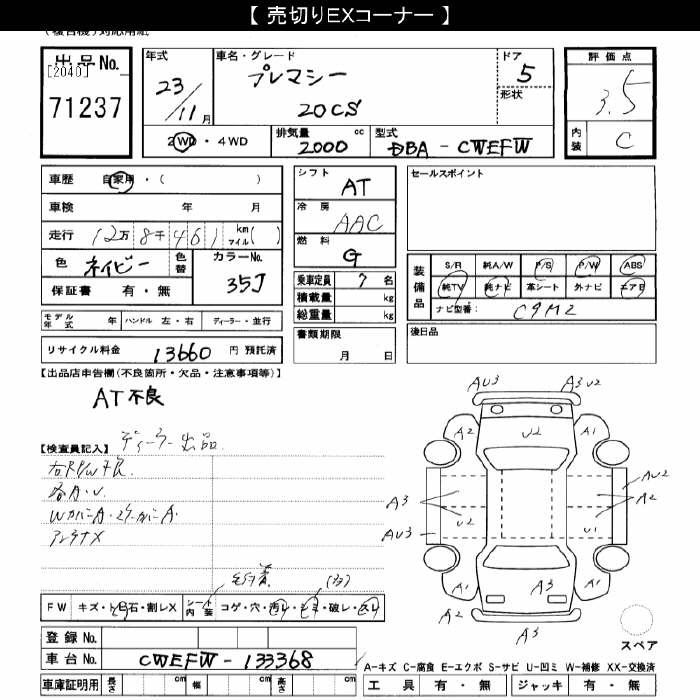 【 売切りEXコーナー 】
出品No.
[2040]
71237
年式
23/11月
車名・グレード
プレマシー
20CS
ドア
5
形状
評価点
3.5
内装
C
2WD・4WD
排気量 cc
2000
型式
DBA - CWEFW
車歴 自家用・( )
車検 年 月
走行 12万8千461 km マイル( )
色 ネイビー
色替
カラーNo.
35J
保証書 有・無
モデル年式 年 ハンドル 左・右 ディーラー・並行
リサイクル料金 13660 円 預託済
シフト
AT
冷房
AAC
燃料
G
乗車定員 7 名
積載量 kg
総重量 kg
書類期限
月 日
セールスポイント
装備品
S/R 純A/W P/S P/W ABS
純TV 純ナビ 革シート 外ナビ エアB
ナビ型番: C9M2
後日品
【出品店申告欄(不良箇所・欠品・注意事項等)】
AT不良
【検査員記入】
ディーラー出品
右RP/W不良.
各A・U.
アンテナX
FW キズ・トビ石・割レX
シート内装 コゲ・穴・汚レ・シミ・破レ・スレ
登録No.
車台No. CWEFW - 133368
車庫証明用 長さ cm 幅 cm 高さ cm
AU3
A3
U2
A2
U2
A1
A3
U2
AU3
AU2
A2
U1
A1
A3
A1
A2
A3
スペア
A-キズ C-腐食 E-エクボ S-サビ U-凹ミ W-補修 XX-交換済
工具 有・無 ジャッキ 有・無